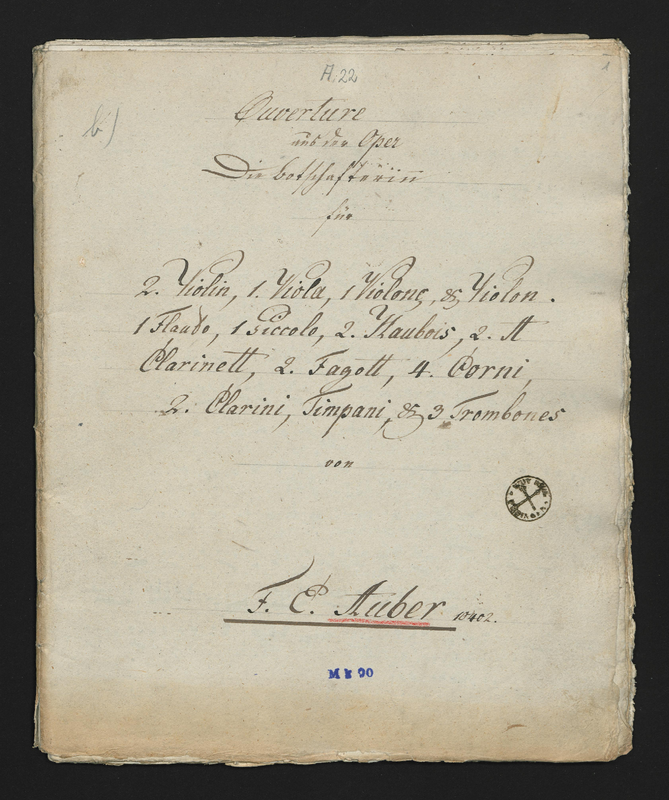 A 22
1
b)
Ouverture
aus der Oper
Die botschafterinn
für
2. Violin, 1. Viola, 1 Violonc, & Violon.
1 Flauto, 1 Piccolo, 2. Haubois, 2. A
Clarinett, 2. Fagott, 4. Corni,
2. Clarini, Timpani, & 3 Trombones
von
F. E. Auber